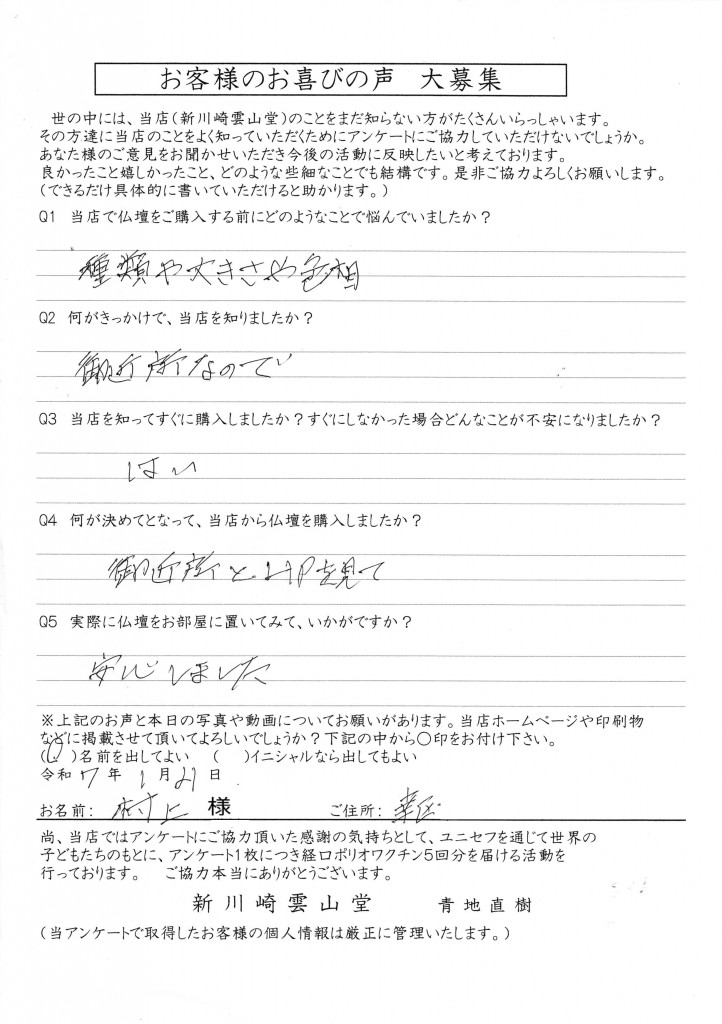 お客様のお喜びの声 大募集
世の中には、当店(新川崎雲山堂)のことをまだ知らない方がたくさんいらっしゃいます。
その方達に当店のことをよく知っていただくためにアンケートにご協力していただけないでしょうか。
あなた様のご意見をお聞かせいただき今後の活動に反映したいと考えております。
良かったこと嬉しかったこと、どのような些細なことでも結構です。是非ご協力よろしくお願いします。
(できるだけ具体的に書いていただけると助かります。)
Q1 当店で仏壇をご購入する前にどのようなことで悩んでいましたか?
種類や大きさや色相
Q2 何がきっかけで、当店を知りましたか?
御近所なので
Q3 当店を知ってすぐに購入しましたか?すぐにしなかった場合どんなことが不安になりましたか?
はい
Q4 何が決めてとなって、当店から仏壇を購入しましたか?
御近所とHPを見て
Q5 実際に仏壇をお部屋に置いてみて、いかがですか?
安心しました
※上記のお声と本日の写真や動画についてお願いがあります。当店ホームページや印刷物
などに掲載させて頂いてよろしいでしょうか?下記の中から○印をお付け下さい。
(○)名前を出してよい ( )イニシャルなら出してもよい
令和 7 年 1 月 21 日
お名前: 村上 様 ご住所: 幸区
尚、当店ではアンケートにご協力頂いた感謝の気持ちとして、ユニセフを通じて世界の
子どもたちのもとに、アンケート1枚につき経口ポリオワクチン5回分を届ける活動を
行っております。 ご協力本当にありがとうございます。
新川崎雲山堂 青地直樹
(当アンケートで取得したお客様の個人情報は厳正に管理いたします。)